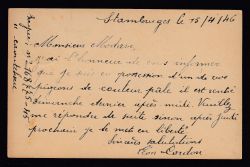 Stambruges le 15/4/46
Monsieur
J'ai l'honneur de vous informer
que je suis en possession d'un de vos
pigeons de couleur pâle il est rentré
dimanche dernier après midi. Veuillez
me répondre de suite sinon après jeudi
prochain je le met en liberté
Sincères salutations
Léon